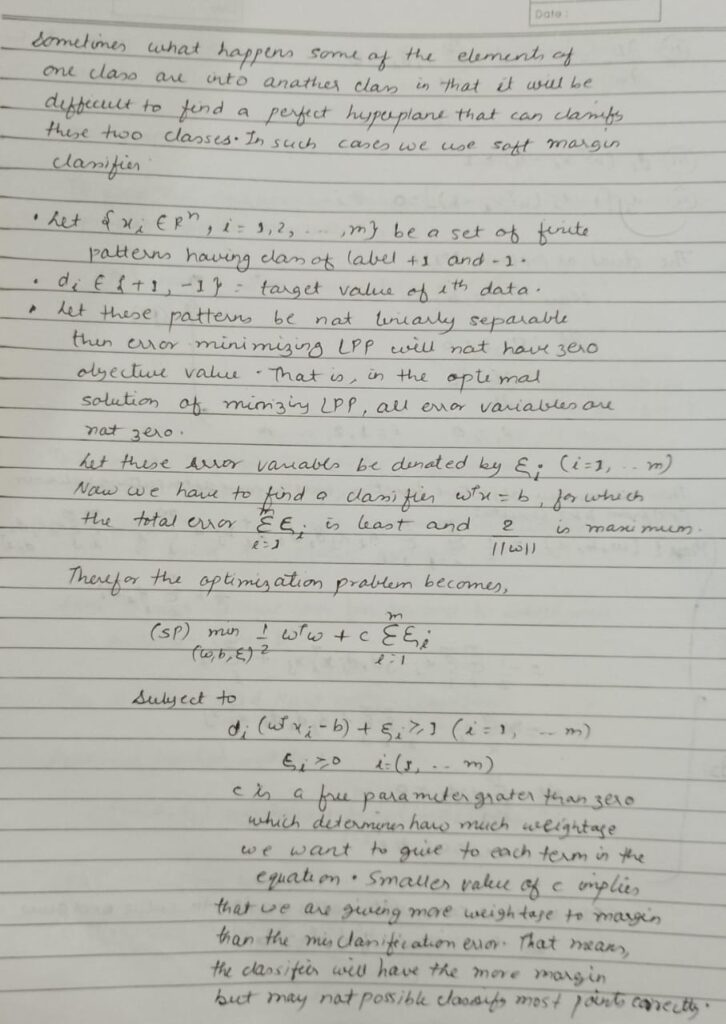 Date:
Sometimes what happens some of the elements of
one class are into another class in that it will be
difficult to find a perfect hyperplane that can classify
these two classes. In such cases we use soft margin
classifier
• Let {xᵢ ∈ Rⁿ, i = 1,2, ...,m} be a set of finite
patterns having class of label +1 and -1.
• dᵢ ∈ {+1, -1} = target value of ith data.
• Let these patterns be not linearly separable
then error minimizing LPP will not have zero
objective value. That is, in the optimal
solution of minizing LPP, all error variables are
not zero.
Let these error variables be denoted by ξᵢ (i=1, .. m)
Now we have to find a classifier wᵀx = b, for which
the total error Σᵢ₌₁ᵐ ξᵢ is least and 2/||w|| is maximum.
Therefor the optimization problem becomes,
(SP) min (w,b,ξ) 1/2 wᵀw + c Σᵢ₌₁ᵐ ξᵢ
Subject to
dᵢ (wᵀxᵢ - b) + ξᵢ ≥ 1 (i = 1, ... m)
ξᵢ ≥ 0 i=(1, .. m)
c is a free parameter grater than zero
which determines how much weightage
we want to give to each term in the
equation. Smaller value of c implies
that we are giving more weightage to margin
than the misclassification error. That means,
the classifier will have the more margin
but may not possible classify most points correctly.